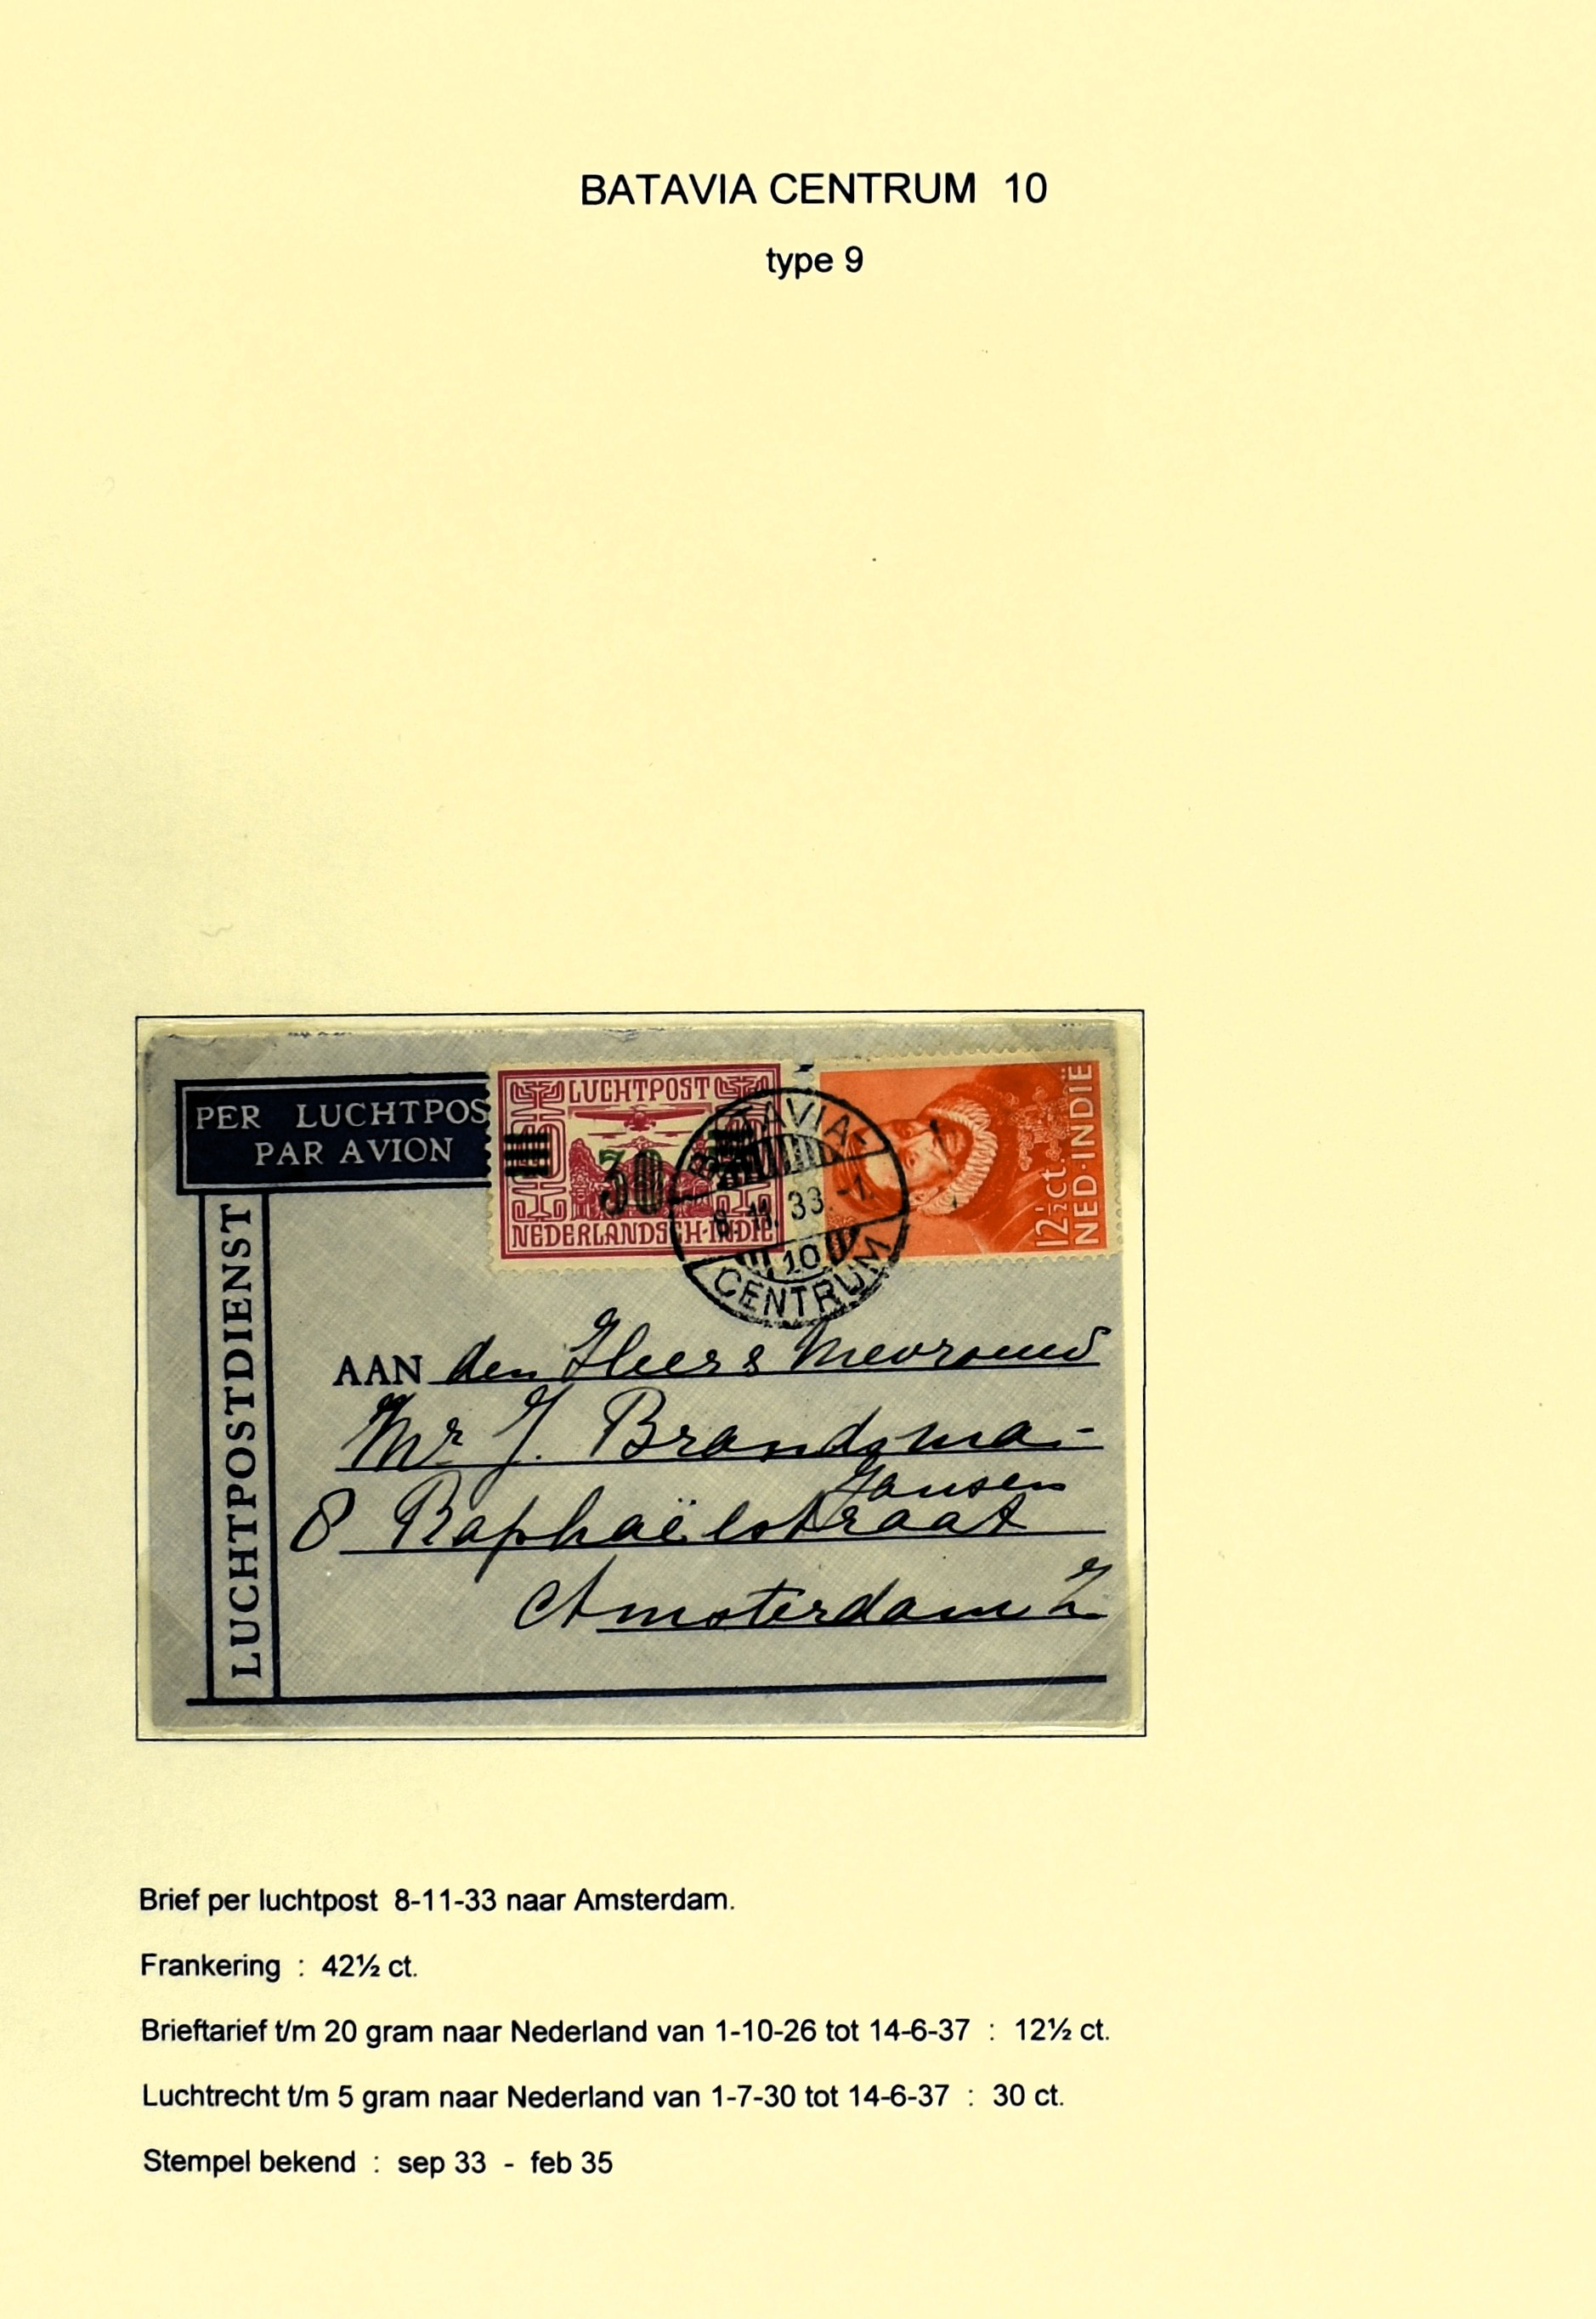 BATAVIA CENTRUM 10
type 9
PER LUCHTPOS
PAR AVION
LUCHTPOSTDIENST
LUCHTPOST
30
NEDERLANDSCH-INDIË
BATAVIA-
8.11.33.-1.
10
CENTRUM
12½ct.
NED-INDIË
AAN den Heer & Mevrouw
Mr J. Brandsma-
Jansen
8 Raphaëlstraat
Amsterdam Z.
Brief per luchtpost 8-11-33 naar Amsterdam.
Frankering : 42½ ct.
Brieftarief t/m 20 gram naar Nederland van 1-10-26 tot 14-6-37 : 12½ ct.
Luchtrecht t/m 5 gram naar Nederland van 1-7-30 tot 14-6-37 : 30 ct.
Stempel bekend : sep 33 - feb 35